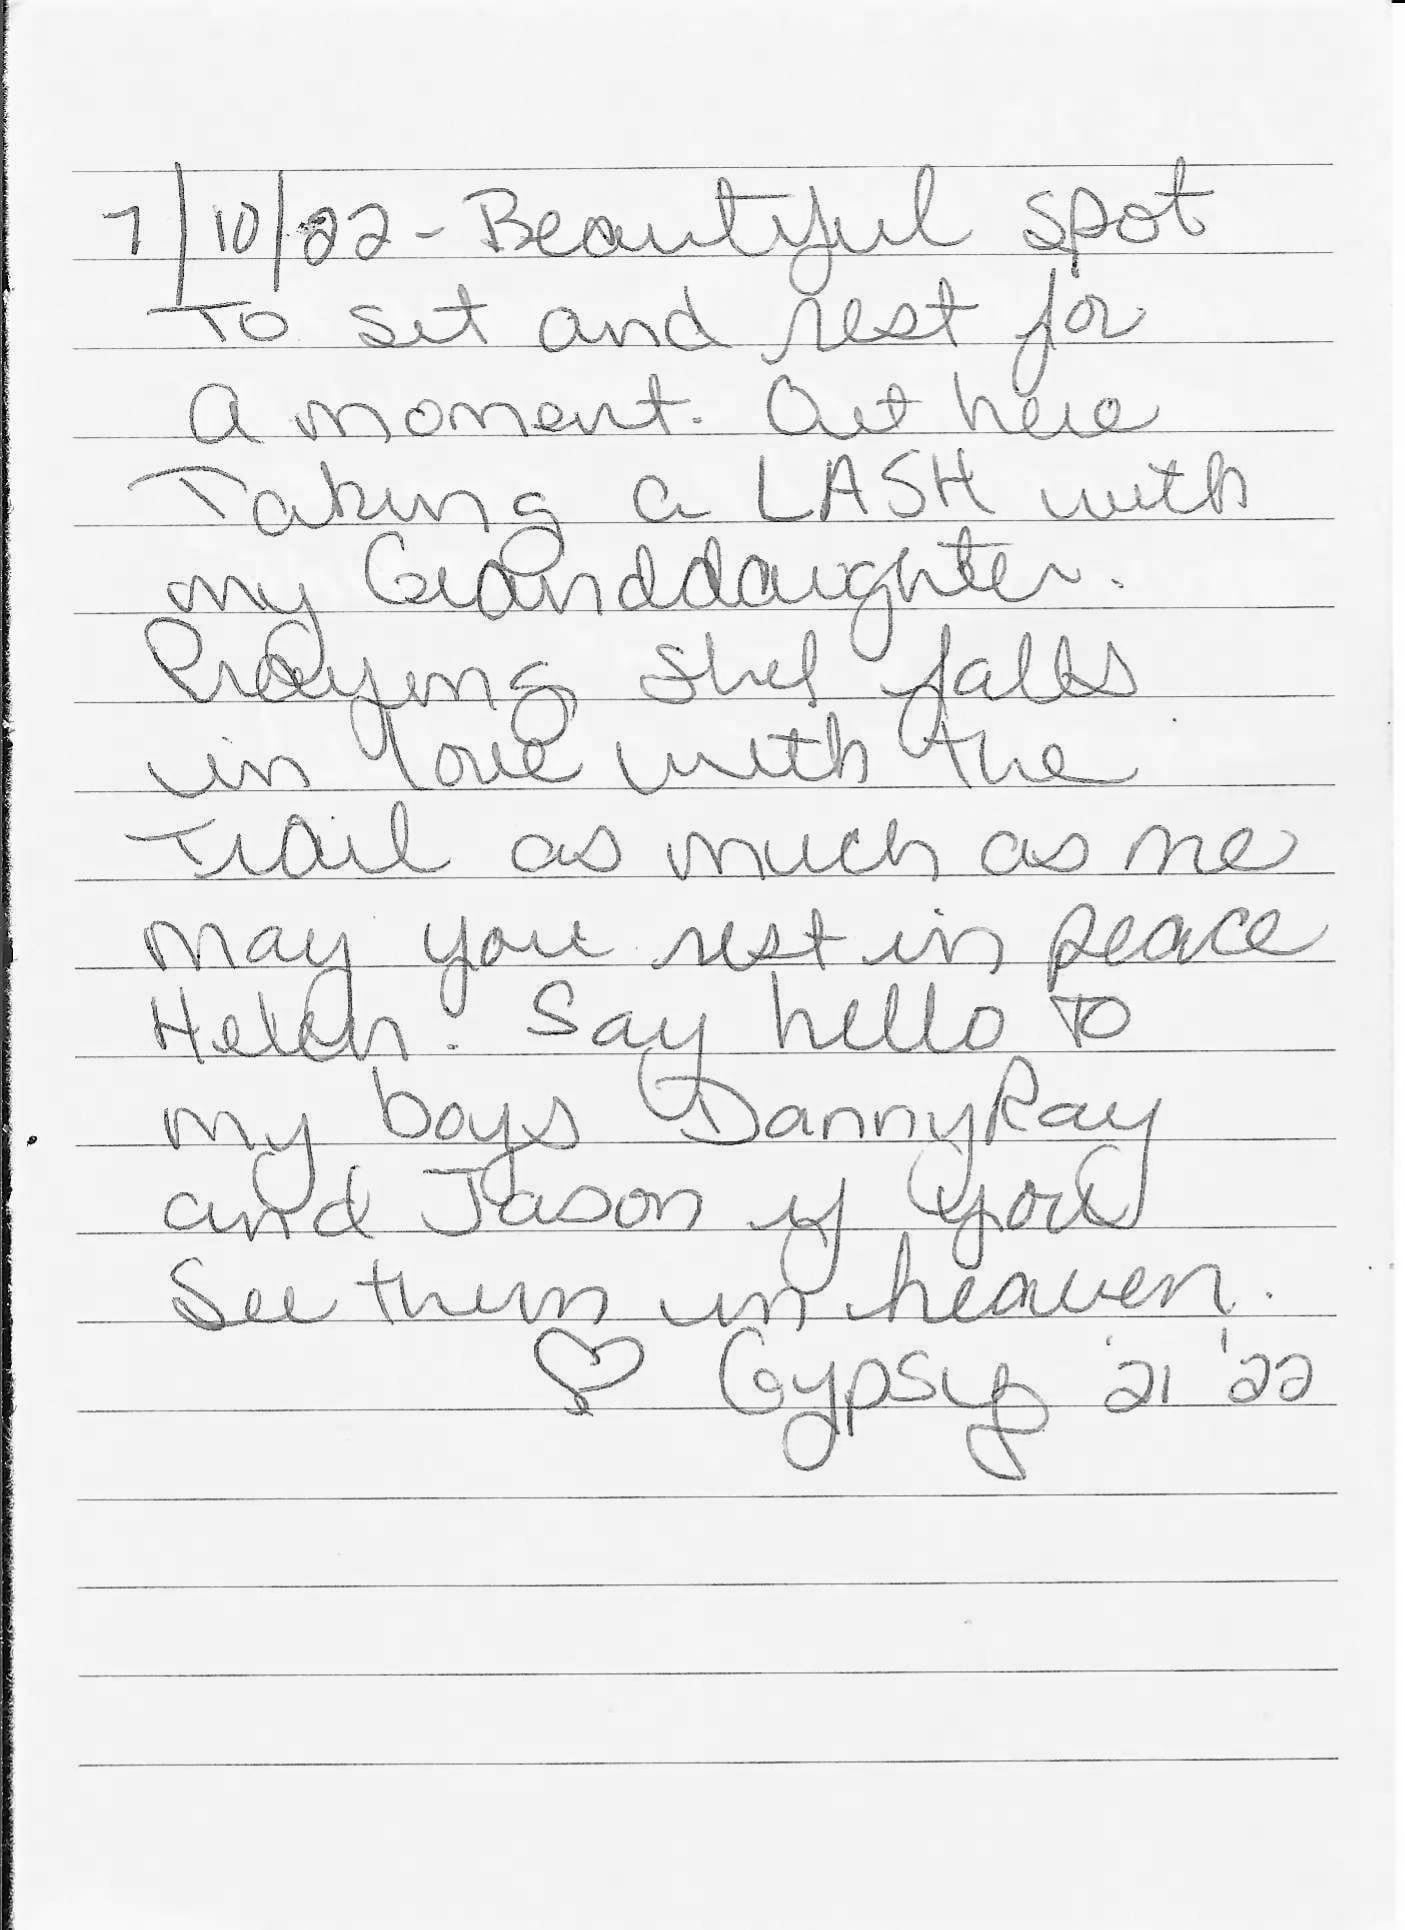 7/10/22 - Beautiful spot
To set and rest for
a moment. Out here
Taking a LASH with
my Granddaughter.
Praying she falls
in love with the
Trail as much as me
may you rest in peace
Helen. Say hello to
my boys DannyRay
and Jason if you
See them in heaven.
♡ Gypsy '21 '22